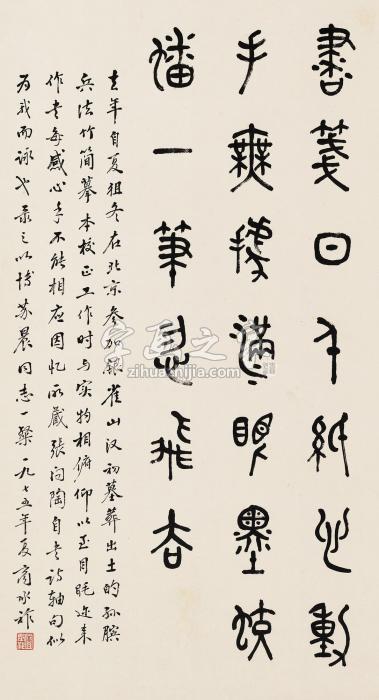 書箋日千紙心動
手無據滿眼墨蛟
蟠一筆忽飛去
去年自夏徂冬在北京参加银雀山汉初墓葬出土的孙臏
兵法竹简摹本校正工作时与实物相俯仰以至目眊迩来
作书每感心手不能相应因忆所藏张问陶自书诗轴句似
为我而詠也录之以博苏晨同志一粲 一九七五年夏商承祚
字画之家
zihuazhijia.com